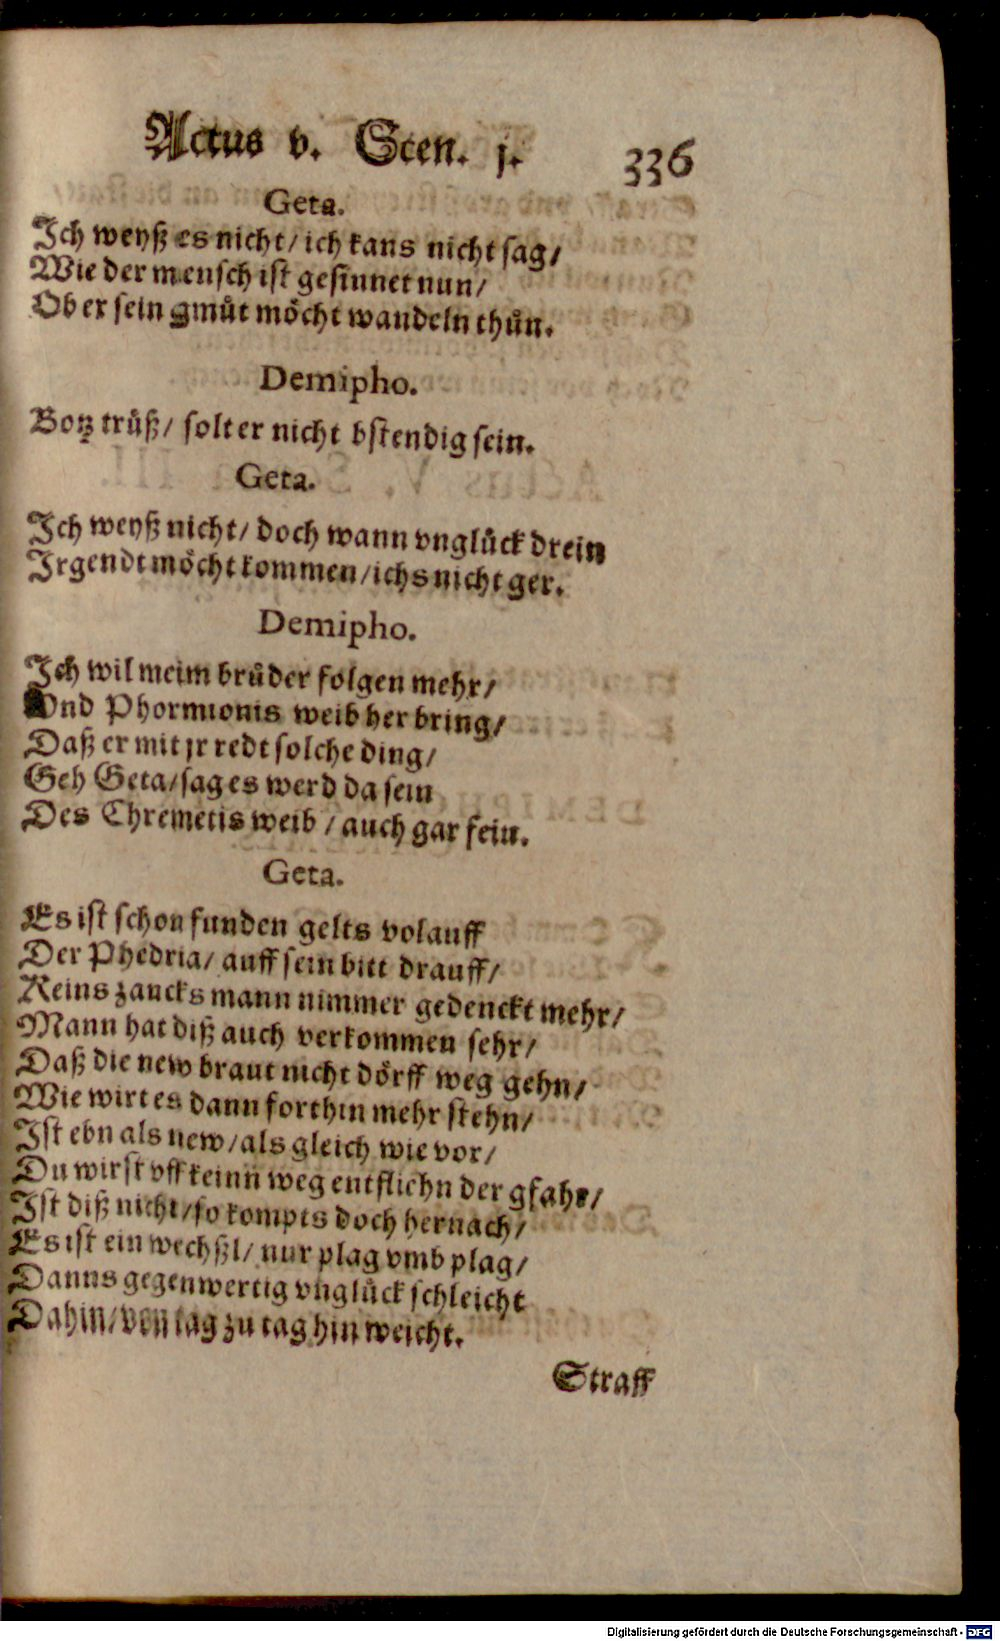 Actus v. Scen. j. 336
Geta.
Ich weyß es nicht/ ich kans nicht sag/
Wie der mensch ist gesinnet nun/
Ob er sein gmůt möcht wandeln thůn.
Demipho.
Botz trůß/ solt er nicht bstendig sein.
Geta.
Ich weyß nicht/ doch wann vnglůck drein
Irgendt möcht kommen/ ichs nicht ger.
Demipho.
Ich wil meim brůder folgen mehr/
Vnd Phormionis weib her bring/
Daß er mit jr redt solche ding/
Geh Geta/ sag es werd da sein
Des Chremetis weib / auch gar fein.
Geta.
Es ist schon funden gelts volauff
Der Phedria/ auff sein bitt drauff/
Keins zancks mann nimmer gedenckt mehr/
Mann hat diß auch verkommen sehr/
Daß die new braut nicht dörff weg gehn/
Wie wirt es dann forthin mehr stehn/
Ist ebn als new/ als gleich wie vor/
Du wirst vff keinn weg entfliehn der gfahr/
Ist diß nicht/ so kompts doch hernach/
Es ist ein wechßl/ nur plag vmb plag/
Danns gegenwertig vnglůck schleicht
Dahin/ von tag zu tag hin weicht.
Straff
Digitalisierung gefördert durch die Deutsche Forschungsgemeinschaft - DFG